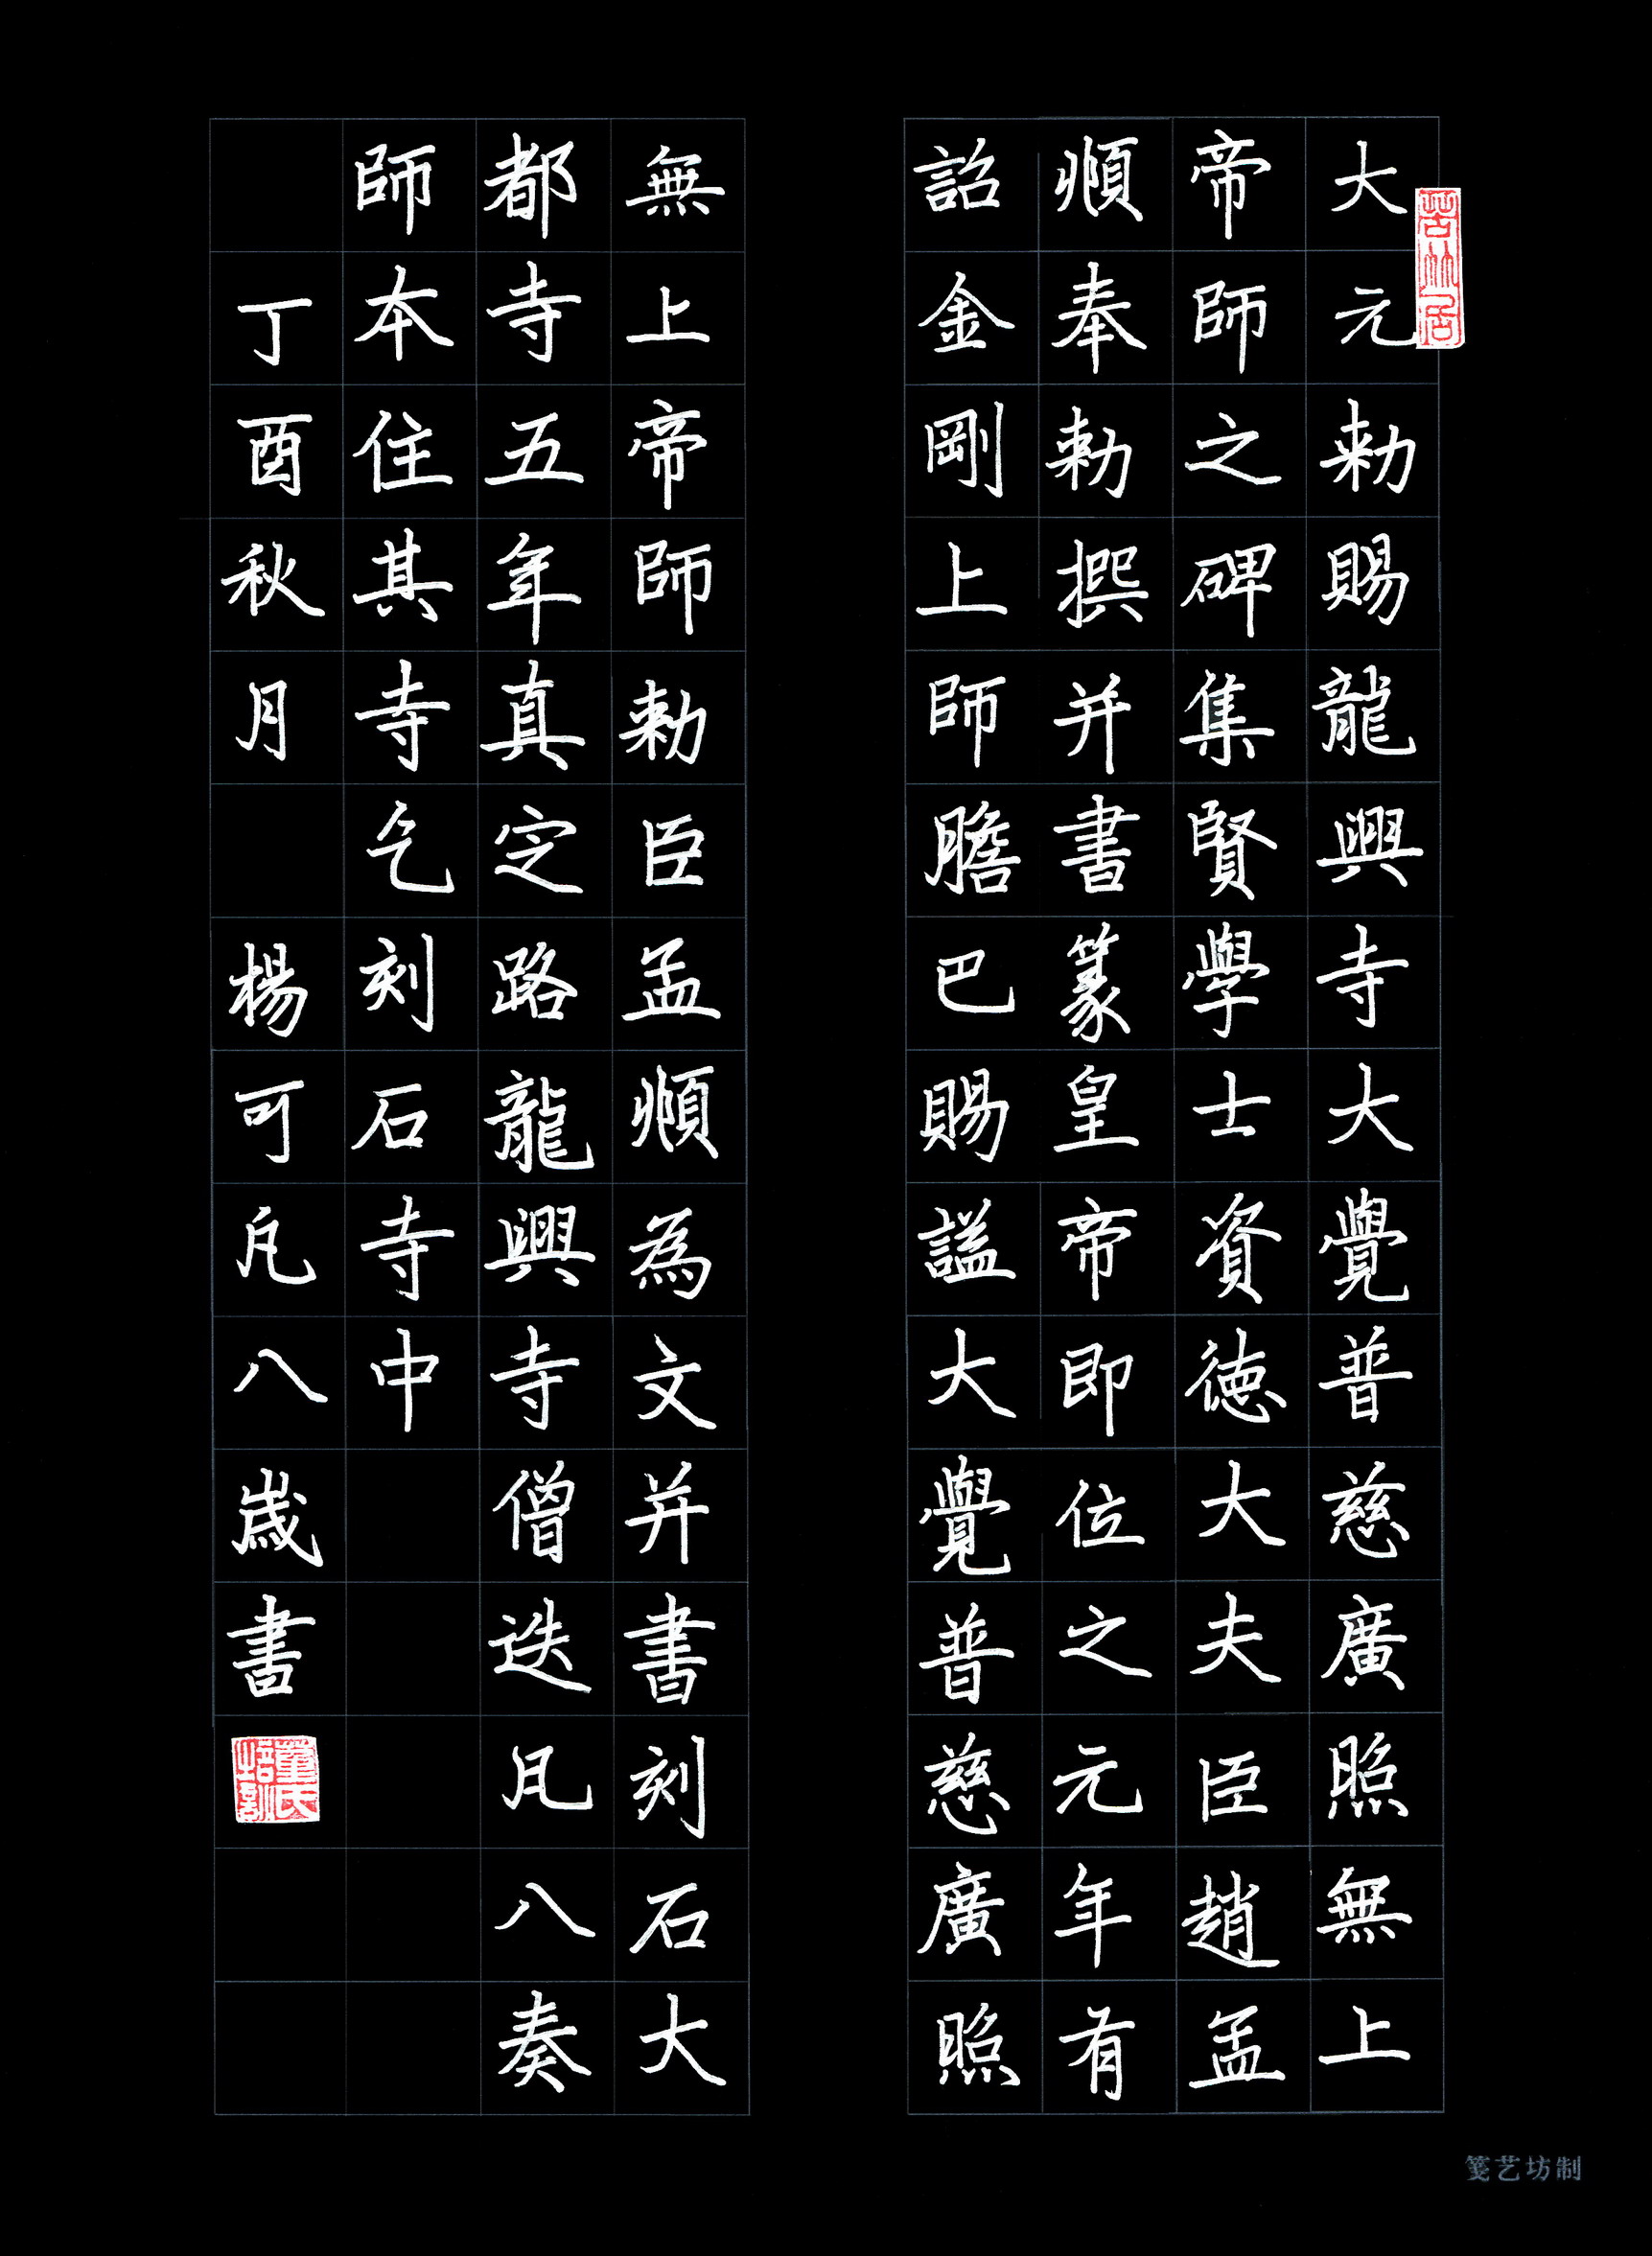 苦竹居
大元勅賜龍興寺大覺普慈廣照無上
帝師之碑集賢學士資德大夫臣趙孟
頫奉勅撰并書篆皇帝即位之元年有
詔金剛上師膽巴賜謚大覺普慈廣照
無上帝師勅臣孟頫為文并書刻石大
都寺五年真定路龍興寺僧迭凡八奏
師本住其寺乞刻石寺中
丁酉秋月 楊可凡八歲書
董氏培訓
笺艺坊制